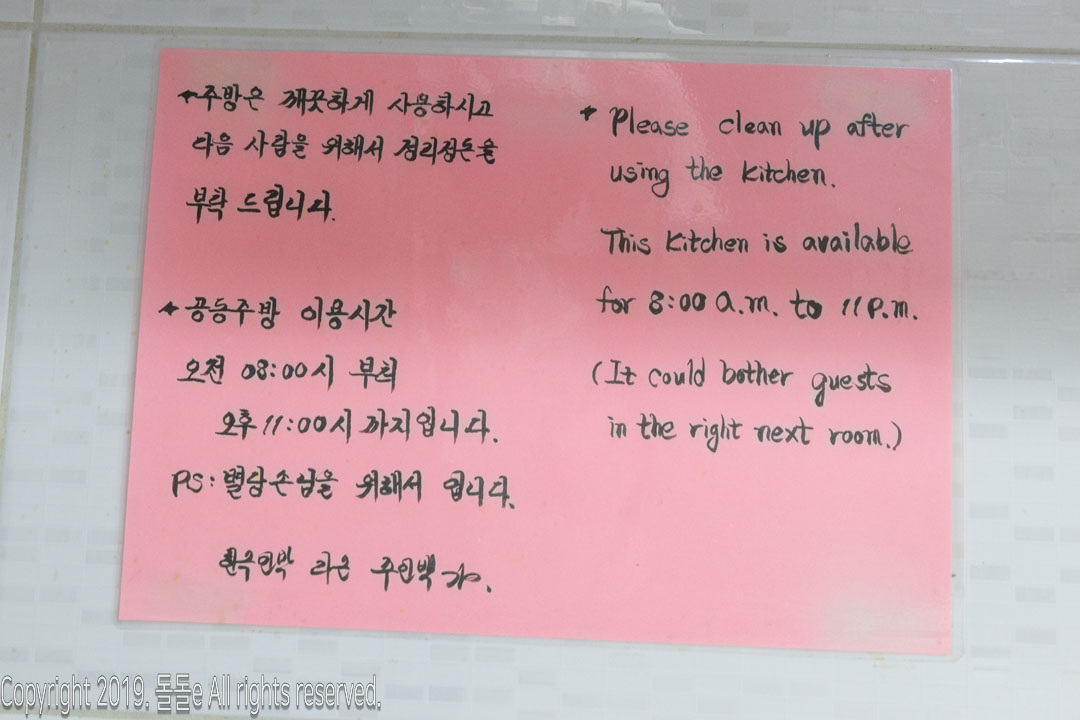 주방은 깨끗하게 사용하시고
다음 사람을 위해서 정리정돈을
부탁 드립니다.
공동주방 이용시간
오전 08:00시 부터
오후 11:00시 까지입니다.
PS: 별담손님을 위해서 입니다.
주인백
Please clean up after
using the kitchen.
This kitchen is available
for 8:00 a.m. to 11 P.m.
(It could bother guests
in the right next room.)
Copyright 2019. 돌돌e All rights reserved.